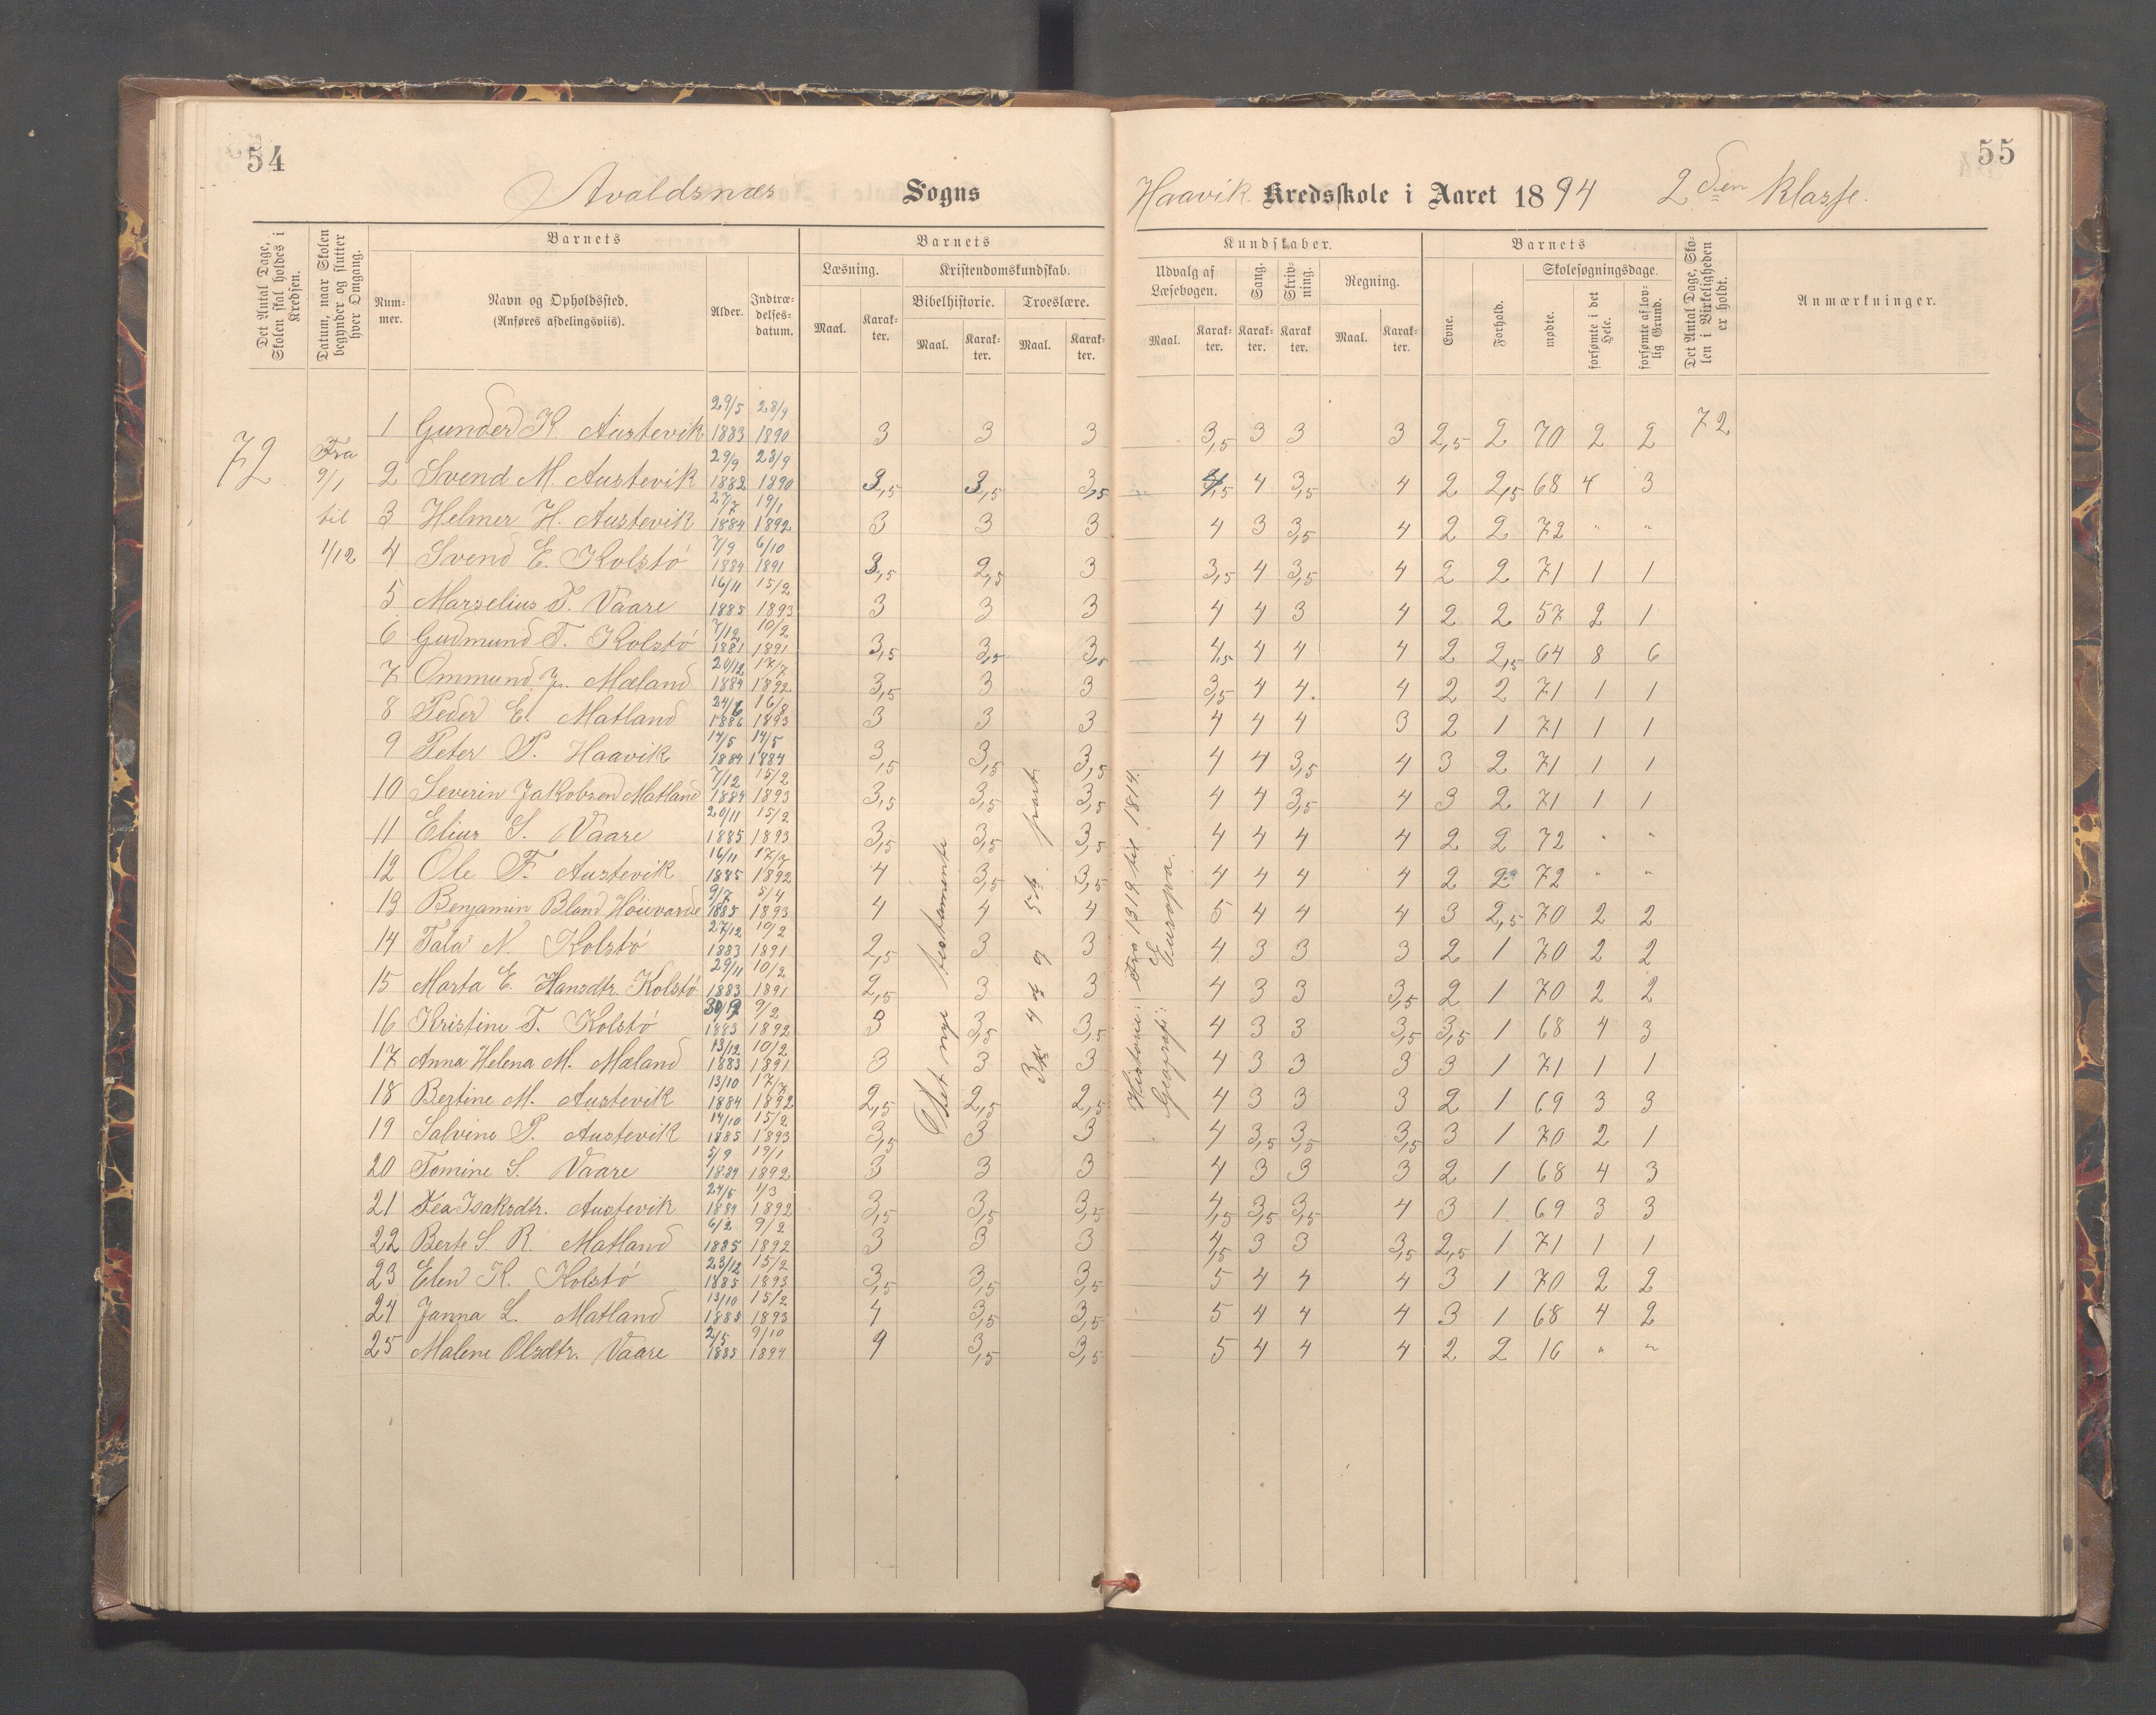 54
55
Avaldsnæs Sogns Haavik Kredsskole i Aaret 1894 2den Klasse.
Det Antal Dage, Skolen skal holdes i Kredsen.
Datum, naar Skolen begynder og slutter hver Omgang.
Barnets
Nummer.
Navn og Opholdssted. (Anføres afdelingsviis).
Alder.
Indtrædelsesdatum.
Barnets
Læsning.
Maal. Karakter.
Kristendomskundskab.
Bibelhistorie.
Maal. Karakter.
Troeslære.
Maal. Karakter.
Kundskaber.
Udvalg af Læsebogen.
Maal. Karakter.
Sang. Karakter.
Skrivning. Karakter
Regning.
Maal. Karakter.
Barnets
Evne.
Forhold.
Skolesøgningsdage.
mødte.
forsømte i det Hele.
forsømte af lovlig Grund.
Det Antal Dage, Skolen i Virkeligheden er holdt.
Anmærkninger.
72
Fra 9/1 til 1/12
1 Gunder K. Austevik 29/5 1883 28/9 1890 3 3 3 3,5 3 3 3 2,5 2 70 2 2 72
2 Svend M. Austevik 29/9 1882 28/9 1890 3,5 3,5 3,5 4,5 4 3,5 4 2 2,5 68 4 3
3 Helmer H. Austevik 27/7 1884 19/1 1892 3 3 3 4 3 3,5 4 2 2 72 " "
4 Svend E. Kolstö 7/9 1884 6/10 1891 3,5 2,5 3 3,5 4 3,5 4 2 2 71 1 1
5 Marselius T. Vaare 16/11 1885 15/2 1893 3 3 3 4 4 3 4 2 2 57 2 1
6 Gudmund T. Kolstö 7/12 1881 10/2 1891 3,5 3,5 3,5 4,5 4 4 4 2 2,5 64 8 6
7 Ommund J. Mæland 20/12 1884 17/7 1892 3,5 3 3 3,5 4 4. 4 2 2 71 1 1
8 Peder E. Matland 24/6 1886 16/8 1893 3 3 3 4 4 4 3 2 1 71 1 1
9 Peter P. Haavik 14/5 1884 14/5 1884 3,5 3,5 3,5 4 4 3,5 4 3 2 71 1 1
10 Severin Jakobsen Matland 7/12 1884 15/2 1893 3,5 3,5 3,5 4 4 3,5 4 3 2 71 1 1
11 Elius S. Vaare 20/11 1885 15/2 1893 3,5 3,5 3,5 4 4 4 4 2 2 72 " "
12 Ole F. Austevik 16/11 1885 17/7 1892 4 3,5 3,5 4 4 4 4 2 2 72 " "
13 Benjamin Bland Höievarde 9/7 1885 5/4 1893 4 4 4 5 4 4 4 3 2,5 70 2 2
14 Tala N. Kolstö 27/12 1883 10/2 1891 2,5 3 3 4 3 3 3 2 1 70 2 2
15 Marta E. Hansdtr. Kolstö 29/11 1883 10/2 1891 2,5 3 3 4 3 3 3,5 2 1 70 2 2
16 Kristine T. Kolstö 30/9 1883 9/2 1892 3 3,5 3,5 4 3 3 3,5 3,5 1 68 4 3
17 Anna Helena M. Mæland 13/12 1883 10/2 1891 3 3 3 4 3 3 3 3 1 71 1 1
18 Bertine M. Austevik 13/10 1884 17/7 1892 2,5 2,5 2,5 4 3 3 3 2 1 69 3 3
19 Salvine P. Austevik 14/10 1885 15/2 1893 3,5 3 3 4 3,5 3,5 3,5 3 1 70 2 1
20 Tomine S. Vaare 5/9 1884 19/1 1892 3 3 3 4 3 3 3 2 1 68 4 3
21 Tea Isaksdtr. Austevik 24/5 1884 1/3 1892 3,5 3,5 3,5 4,5 3,5 3,5 4 3 1 69 3 3
22 Berte S R. Matland 6/2 1885 9/2 1892 3 3 3 4,5 3 3 3,5 2,5 1 71 1 1
23 Elen K. Kolstö 23/12 1885 15/2 1893 3,5 3,5 3,5 5 4 4 4 3 1 70 2 2
24 Janna L. Matland 13/10 1885 15/2 1893 4 3,5 3,5 5 4 4 4 3 1 68 4 2
25 Malene Olsdtr. Vaare 2/5 1885 9/10 1894 4 3,5 3,5 5 4 4 4 2 2 16 " "
Det nye testamente
3die 4de og 5te part
Historie: Fra 1319 til 1814.
Geografi: Europa.